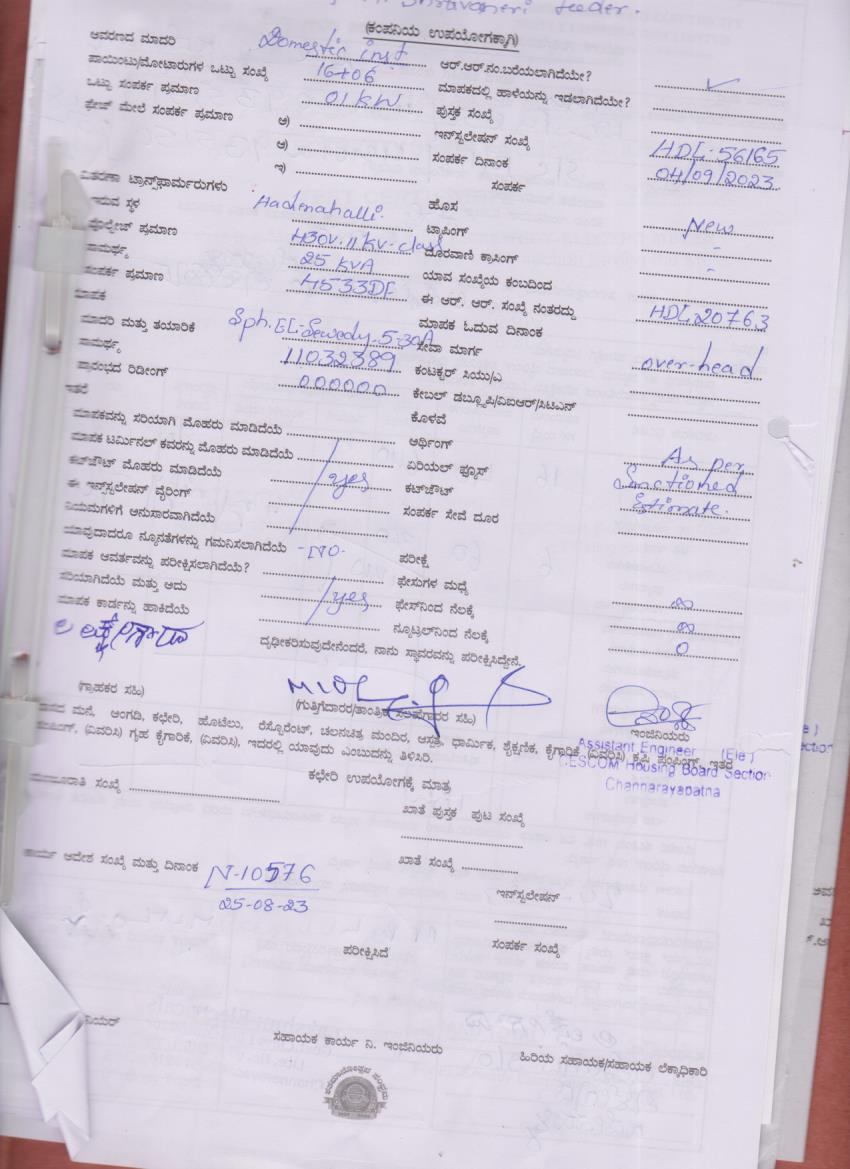 Shravaneri feeder.
(ಕಂಪನಿಯ ಉಪಯೋಗಕ್ಕಾಗಿ)
ಆವರಣದ ಮಾದರಿ Domestic inst ಆರ್.ಆರ್.ನಂ.ಬರೆಯಲಾಗಿದೆಯೇ?
ಪಾಯಿಂಟು/ಮೋಟಾರುಗಳ ಒಟ್ಟು ಸಂಖ್ಯೆ 16+06 ಮಾಪಕದಲ್ಲಿ ಹಾಳೆಯನ್ನು ಇಡಲಾಗಿದೆಯೇ?
ಒಟ್ಟು ಸಂಪರ್ಕ ಪ್ರಮಾಣ 01 KW. ಪುಸ್ತಕ ಸಂಖ್ಯೆ
ಫೇಜ್ ಮೇಲೆ ಸಂಪರ್ಕ ಪ್ರಮಾಣ ಅ) ಇನ್‌ಸ್ಟಲೇಷನ್ ಸಂಖ್ಯೆ HDL-56165
ಆ) ಸಂಪರ್ಕ ದಿನಾಂಕ 04/09/2023
ಇ) ಸಂಪರ್ಕ
ವಿತರಣಾ ಟ್ರಾನ್ಸ್‌ಫಾರ್ಮರುಗಳು
ಇರುವ ಸ್ಥಳ Hadenahalli. ಹೊಸ New
ವೋಲ್ಟೇಜ್ ಪ್ರಮಾಣ 430V.11 KV-class ಟ್ಯಾಪಿಂಗ್ -
ಸಾಮರ್ಥ್ಯ 25 KVA ದೂರವಾಣಿ ಕ್ರಾಸಿಂಗ್ -
ಸಂಪರ್ಕ ಪ್ರಮಾಣ ಯಾವ ಸಂಖ್ಯೆಯ ಕಂಬದಿಂದ
ಮಾಪಕ ಈ ಆರ್. ಆರ್. ಸಂಖ್ಯೆ ನಂತರದ್ದು HDL 20763
ಮಾದರಿ ಮತ್ತು ತಯಾರಿಕೆ Sph. EL-Sewedy-5-30A ಮಾಪಕ ಓದುವ ದಿನಾಂಕ
ಸಾಮರ್ಥ್ಯ 11032389 ಸೇವಾ ಮಾರ್ಗ over-head
ಪ್ರಾರಂಭದ ರಿಡೀಂಗ್ 000000 ಕಂಟಕ್ಟರ್ ಸಿಯು/ಎ
ಇತರೆ ಕೇಬಲ್ ಡಬ್ಲ್ಯೂಪಿ/ವಿಐಆರ್/ಸಿಟಿಎನ್
ಮಾಪಕವನ್ನು ಸರಿಯಾಗಿ ಮೊಹರು ಮಾಡಿದೆಯೆ ಕೊಳವೆ
ಮಾಪಕ ಟರ್ಮಿನಲ್ ಕವರನ್ನು ಮೊಹರು ಮಾಡಿದೆಯೆ ಅರ್ಥಿಂಗ್ As per
ಕಟ್‌ಔಟ್ ಮೊಹರು ಮಾಡಿದೆಯೆ yes ಏರಿಯಲ್ ಫ್ಯೂಸ್ Sanctioned
ಈ ಇನ್‌ಸ್ಟಲೇಷನ್ ವೈರಿಂಗ್ ಕಟ್‌ಔಟ್ Estimate.
ನಿಯಮಗಳಿಗೆ ಅನುಸಾರವಾಗಿದೆಯೆ ಸಂಪರ್ಕ ಸೇವೆ ದೂರ
ಯಾವುದಾದರೂ ನ್ಯೂನತೆಗಳನ್ನು ಗಮನಿಸಲಾಗಿದೆಯೆ -NO- ಪರೀಕ್ಷೆ
ಮಾಪಕ ಆವರ್ತವನ್ನು ಪರೀಕ್ಷಿಸಲಾಗಿದೆಯೆ? ಫೇಸುಗಳ ಮಧ್ಯೆ ∞
ಸರಿಯಾಗಿದೆಯೆ ಮತ್ತು ಅದು yes ಫೇಸ್‌ನಿಂದ ನೆಲಕ್ಕೆ ∞
ಮಾಪಕ ಕಾರ್ಡನ್ನು ಹಾಕಿದೆಯೆ ನ್ಯೂಟ್ರಲ್‌ನಿಂದ ನೆಲಕ್ಕೆ 0
ದೃಢೀಕರಿಸುವುದೇನೆಂದರೆ, ನಾನು ಸ್ಥಾವರವನ್ನು ಪರೀಕ್ಷಿಸಿದ್ದೇನೆ.
(ಗ್ರಾಹಕರ ಸಹಿ) (ಗುತ್ತಿಗೆದಾರರ/ತಾಂತ್ರಿಕ ಸಲಹೆಗಾರರ ಸಹಿ) ಇಂಜಿನಿಯರು
Assistant Engineer (Ele)
CESCOM Housing Board Section
Channarayapatna
ವಾಸದ ಮನೆ, ಅಂಗಡಿ, ಕಛೇರಿ, ಹೊಟೆಲು, ರೆಸ್ಟೋರೆಂಟ್, ಚಲನಚಿತ್ರ ಮಂದಿರ, ಆಸ್ಪತ್ರೆ, ಧಾರ್ಮಿಕ, ಶೈಕ್ಷಣಿಕ, ಕೈಗಾರಿಕೆ (ವಿವರಿಸಿ) ಕೃಷಿ ಪಂಪಿಂಗ್, ಇತರ
ಪಂಪಿಂಗ್, (ವಿವರಿಸಿ) ಗೃಹ ಕೈಗಾರಿಕೆ, (ವಿವರಿಸಿ), ಇದರಲ್ಲಿ ಯಾವುದು ಎಂಬುದನ್ನು ತಿಳಿಸಿರಿ.
ಕಛೇರಿ ಉಪಯೋಗಕ್ಕೆ ಮಾತ್ರ
ಮಂಜೂರಾತಿ ಸಂಖ್ಯೆ ಖಾತೆ ಪುಸ್ತಕ ಪುಟ ಸಂಖ್ಯೆ
ಕಾರ್ಯ ಆದೇಶ ಸಂಖ್ಯೆ ಮತ್ತು ದಿನಾಂಕ N-10576 ಖಾತೆ ಸಂಖ್ಯೆ
25-08-23 ಇನ್‌ಸ್ಟಲೇಷನ್
ಪರೀಕ್ಷಿಸಿದೆ ಸಂಪರ್ಕ ಸಂಖ್ಯೆ
ನಿಯರ್ ಸಹಾಯಕ ಕಾರ್ಯ ನಿ. ಇಂಜಿನಿಯರು ಹಿರಿಯ ಸಹಾಯಕ/ಸಹಾಯಕ ಲೆಕ್ಕಾಧಿಕಾರಿ